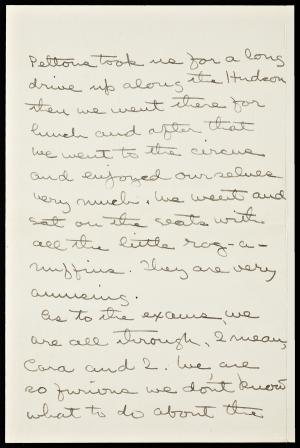 Peltons took us for a long
drive up along the Hudson
then we went there for
lunch and after that
we went to the circus
and enjoyed ourselves
very much. We went and
sat on the seats with
all the little rag-a-
muffins. They are very
amusing.
As to the exams, we
are all through, I mean,
Cara and I. We are
so furious we don't know
what to do about the